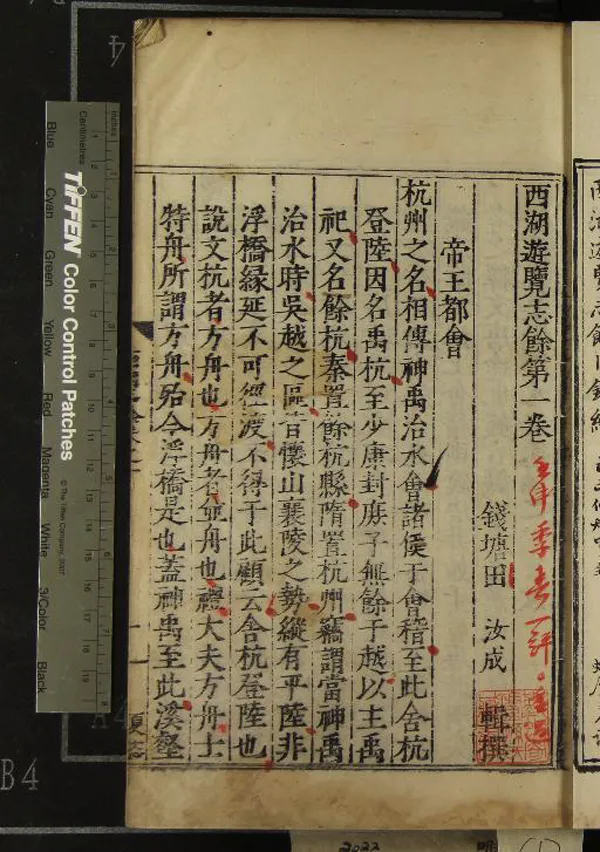 西湖遊覽志餘第一卷
錢塘田 汝成 輯撰
帝王都會
杭州之名相傳神禹治水會諸侯于會稽至此舍杭
登陸因名禹杭至少康封庶子無餘于越以主禹
祀又名餘杭秦置餘杭縣隋置杭州竊謂當神禹
治水時吳越之區皆懷山襄陵之勢縱有平陸非
浮橋縁延不可徑渡不得于此顧云舍杭登陸也
說文杭者方舟也方舟者並舟也禮大夫方舟士
特舟所謂方舟殆今浮橋是也蓋神禹至此溪壑
Centimetres
Inches
TIFFEN Color Control Patches
© The Tiffen Company, 2007
Blue
Cyan
Green
Yellow
Red
Magenta
White
3/Color
Black
B4
A4
2022